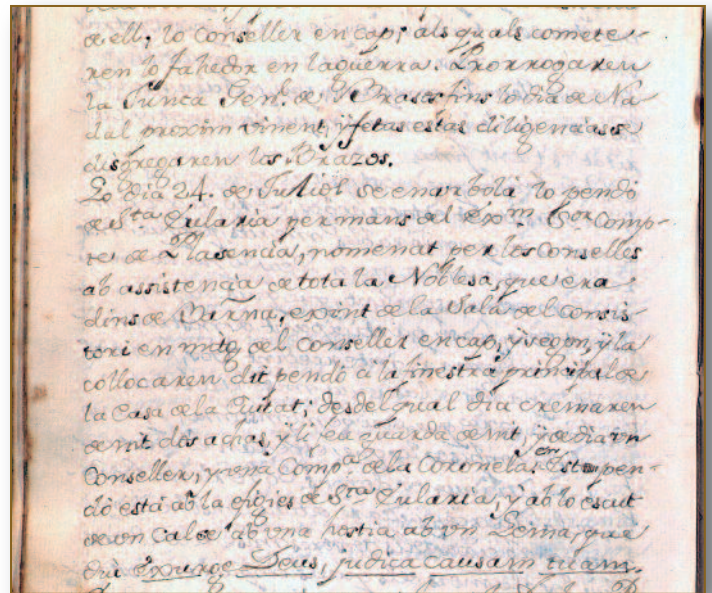 de ell; lo Conseller en cap; als quals comete-
ren lo fahedor en la guerra. Prorrogaren
la Junca Gen.l de Brasos fins lo dia de Na
dal proxim vinent, y fetas estas diligencias se
disgregaren los Brazos.
Lo dia 24. de Juliol se enarbolà lo pendò
de S.ta Eularia per mans del Exm. S.or Comp-
te de Plasencia, nomenat per los Consellés
ab assistencia de tota la Noblesa, que era
dins de Barña, exint de la Sala del Consis-
tori en mitg del Conseller en cap, y segon, y la
collocaren dit pendò à la finestra principal de
la Casa de la Ciutat; desdel qual dia cremaren
de nit dos achas, y li feu guarda de nit, y de dia un
Conseller, y una Comp.a de la Coronela. Est pen-
dò està ab la efigies de S.ta Eularia, y ab lo escut
de un Calce ab una hostia ab un Lema, que
diu Exurge Deus, judica causam tuam.